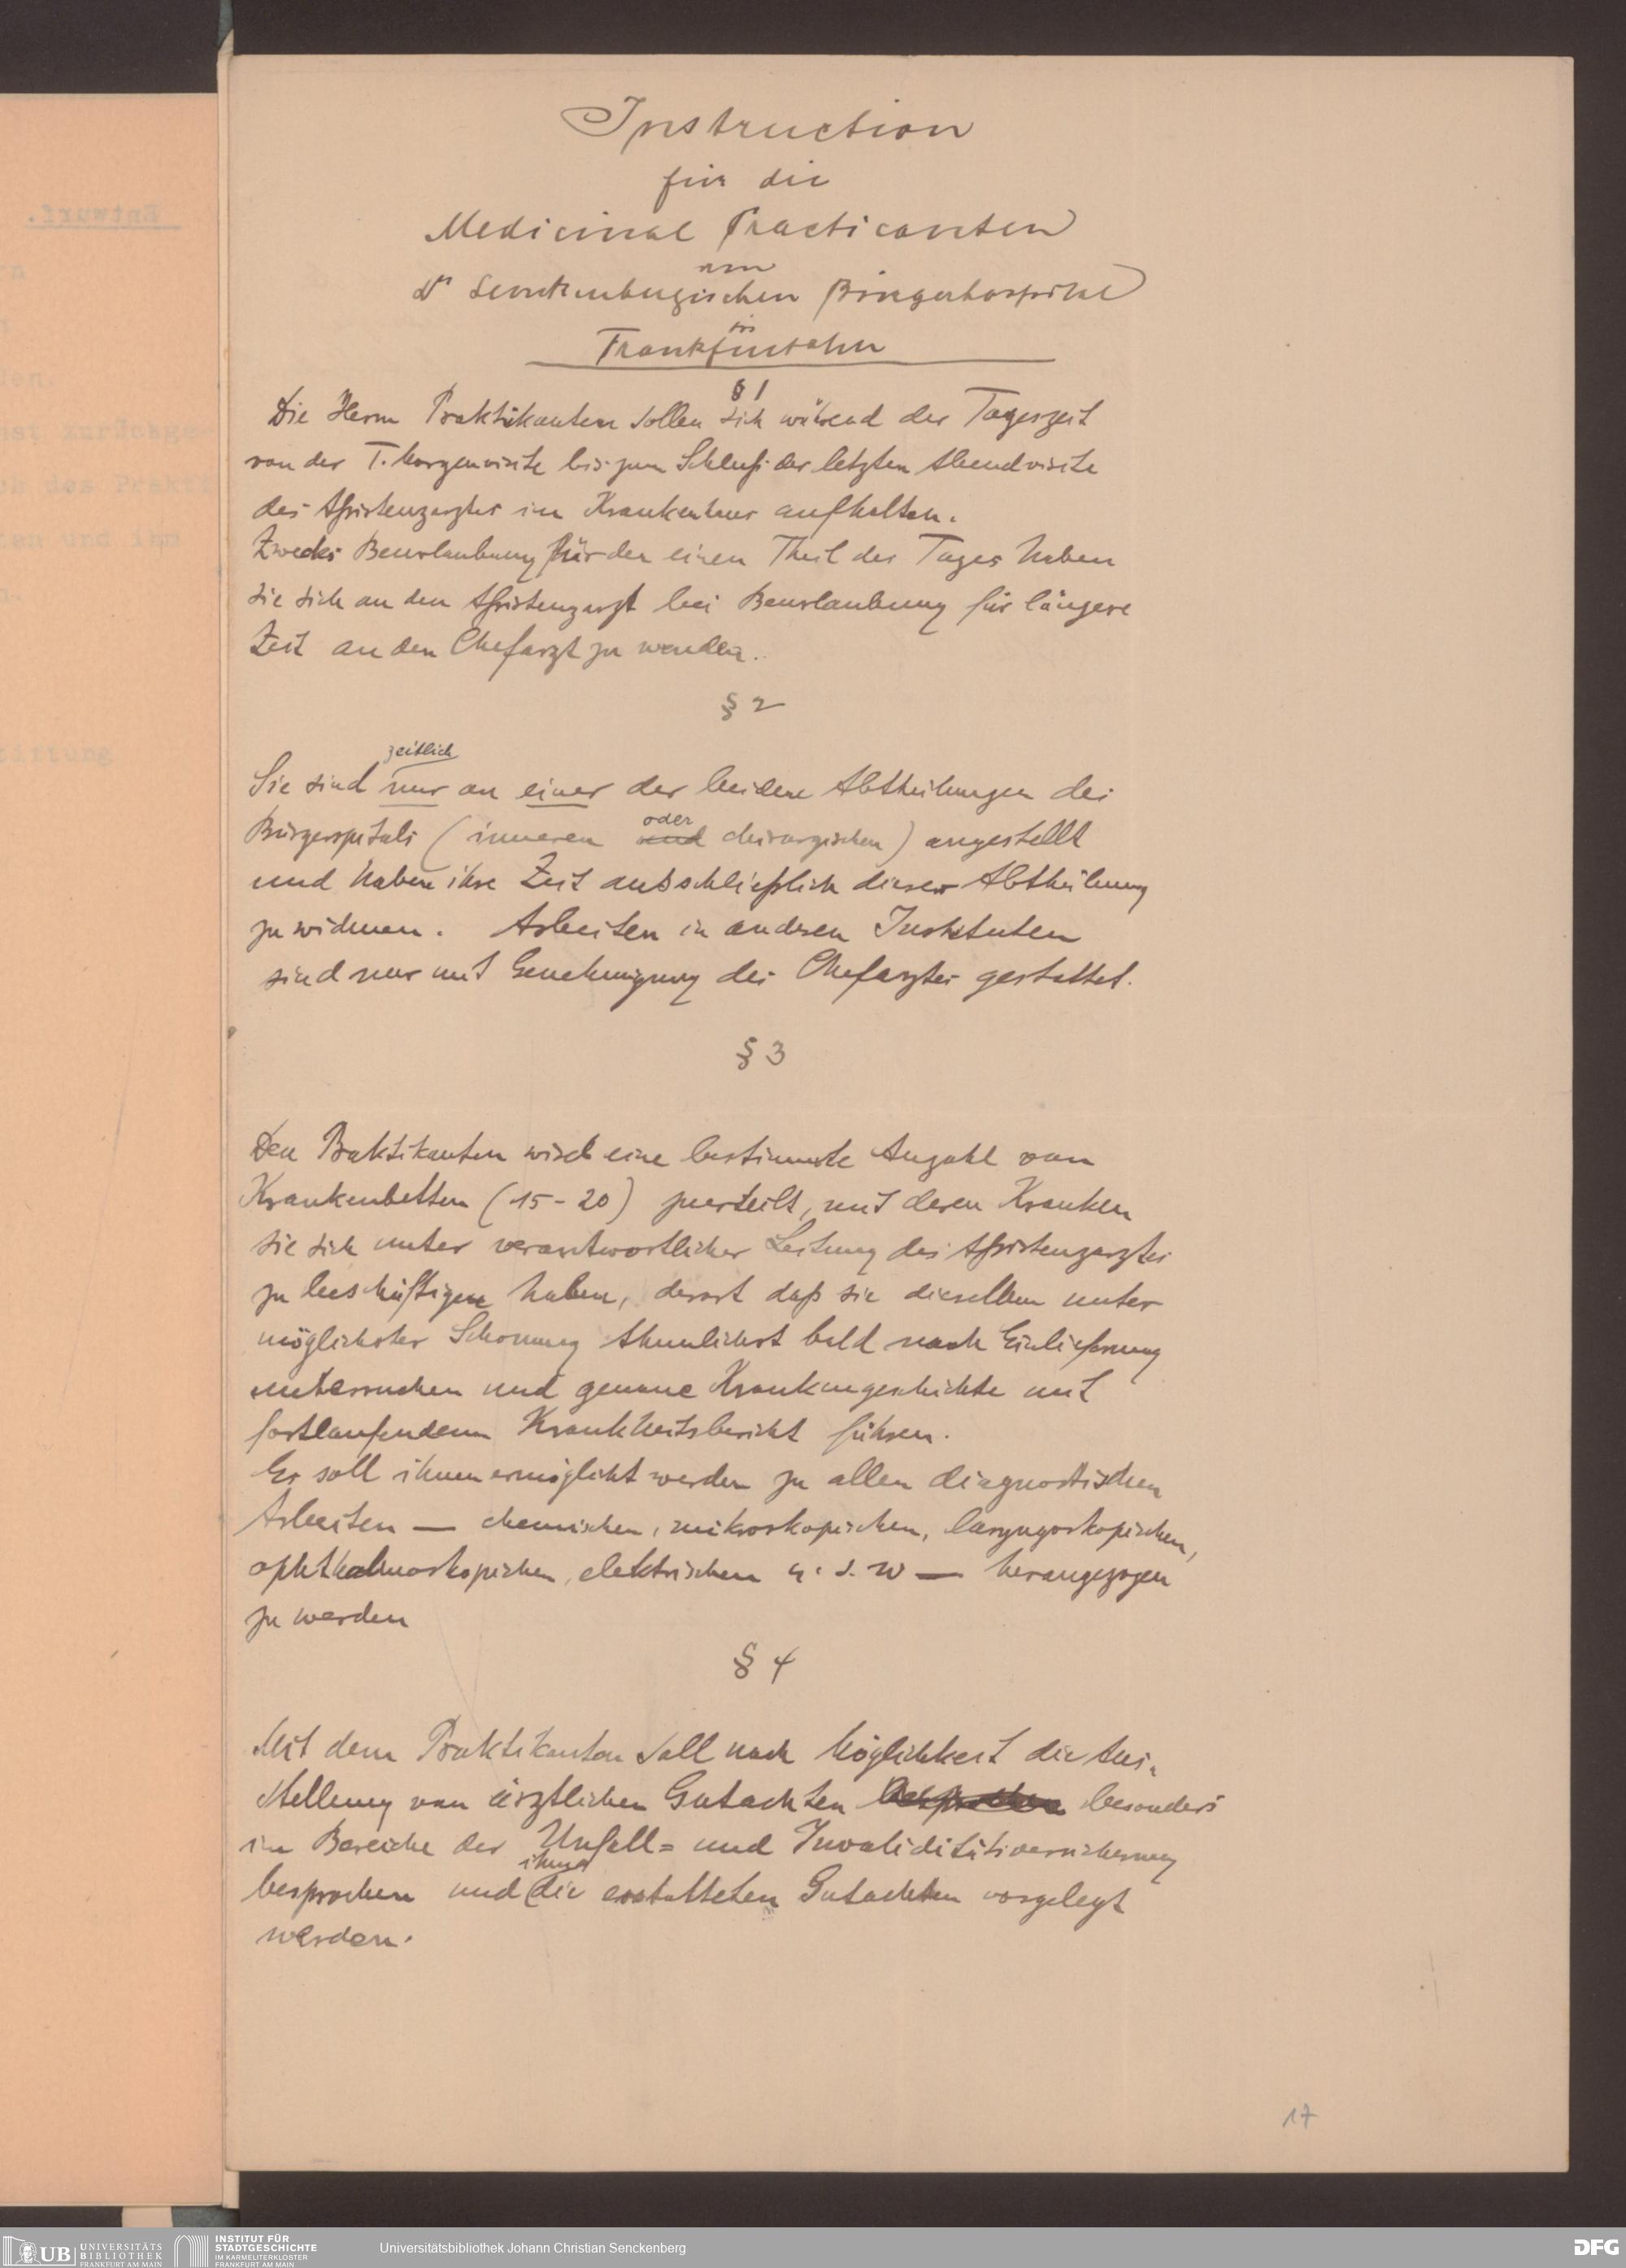 Instruction
für die
Medicinal Practicanten
am
Dr Senckenbergischen Bürgerhospital
in
Frankfurt a/m
§ 1
Die Herrn Praktikanten sollen sich während der Tageszeit
von der Morgenvisite bis zum Schluß der letzten Abendvisite
des Assistenzarztes im Krankenhaus aufhalten.
Zwecks Beurlaubung für den einen Theil des Tages haben
sie sich an den Assistenzarzt bei Beurlaubung für längere
Zeit an den Chefarzt zu wenden.
§ 2
zeitlich
Sie sind nur an einer der beiden Abtheilungen des
Bürgerspitals (inneren und oder chirurgischen) angestellt
und haben ihre Zeit ausschließlich dieser Abtheilung
zu widmen. Arbeiten in andren Instituten
sind nur mit Genehmigung des Chefarztes gestattet.
§ 3
Den Praktikanten wird eine bestimmte Anzahl von
Krankenbetten (15-20) zuerteilt, mit deren Kranken
sie sich unter verantwortlicher Leitung des Assistenzarztes
zu beschäftigen haben, derart daß sie dieselben unter
möglichster Schonung thunlichst bald nach Einlieferung
untersuchen und genaue Krankengeschichte mit
fortlaufendem Krankheitsbericht führen.
Es soll ihnen ermöglicht werden zu allen diagnostischen
Arbeiten — chemischen, mikroskopischen, laryngoskopischen,
ophthalmoskopischen, elektrischen u. s. w — herangezogen
zu werden
§ 4
Mit dem Praktikanten soll nach Möglichkeit die Aus-
stellung von ärztlichen Gutachten besprochen besonders
im Bereiche der Unfall= und Invaliditätsversicherung
besprochen und ihnen die erstatteten Gutachten vorgelegt
werden.
17
Entwurf.
den.
ten und ihm
stiftung
UB UNIVERSITÄTS
BIBLIOTHEK
FRANKFURT AM MAIN
INSTITUT FÜR
STADTGESCHICHTE
IM KARMELITERKLOSTER
FRANKFURT AM MAIN
Universitätsbibliothek Johann Christian Senckenberg
DFG